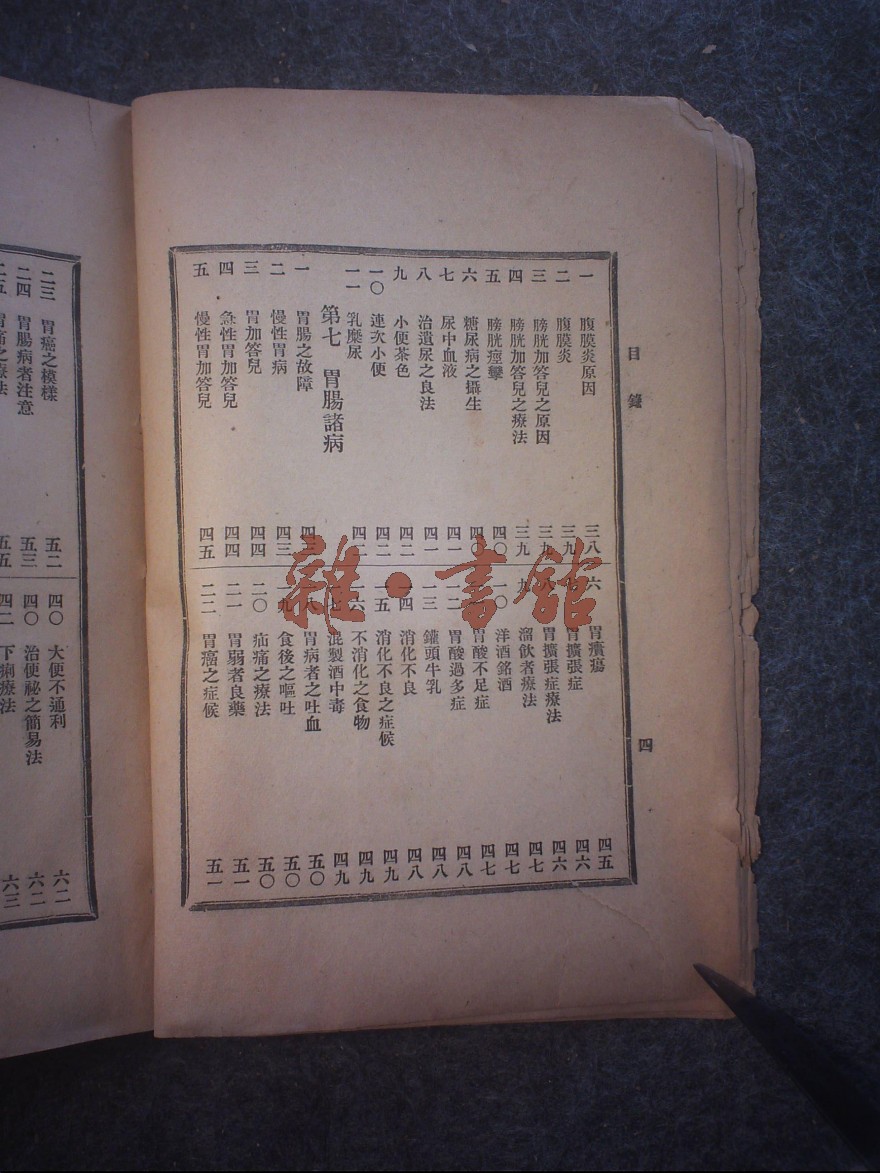 目錄
四
一 腹膜炎原因 三八
二 腹膜炎 三九
三 膀胱加答兒之原因 三九
四 膀胱加答兒之療法 三九
五 膀胱痙攣 四〇
六 糖尿病之攝生 四〇
七 尿中血液 四一
八 治遺尿之良法 四一
九 小便茶色 四二
一〇 連次小便 四二
一一 乳糜尿
第七 胃腸諸病
一 胃腸之故障
二 慢性胃病 四三
三 胃加答兒 四四
四 急性胃加答兒 四四
五 慢性胃加答兒 四五
六 胃潰瘍 四五
胃擴張症 四六
胃擴張症療法 四六
九 溜飲者療法 四七
一〇 洋酒銘酒 四七
胃酸不足症 四七
胃酸過多症 四八
一三 鑵頭牛乳 四八
一四 消化不良 四八
一五 消化不良之症候 四九
不消化之食物 四九
混製酒中毒 四九
胃病者之吐血 五〇
食後之嘔吐 五〇
二〇 疝痛之療法 五〇
二一 胃弱者良藥 五一
二二 胃癌之症候 五一
二三 胃癌之模樣 五二
二四 胃腸病者注意 五三
二五 胃痛之療法 五五
四〇 大便不通利 六二
四〇 治便祕之簡易法 六二
四二 下痢療法 六三
雜•書館